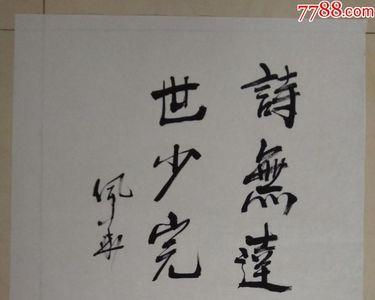 7788.com
詩無達
世少完
佩承